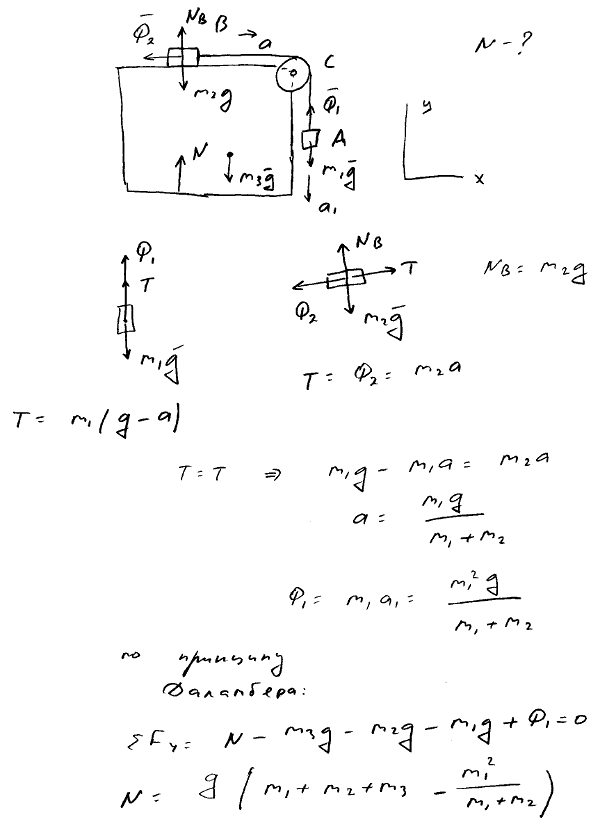 N_B B → a
N - ?
Φ̄₂
C
m₂g
Φ̄₁
y
N
A
m₃ḡ
m₁ḡ
x
a₁
Φ₁
T
m₁ḡ
N_B
T
Φ₂
m₂ḡ
N_B = m₂g
T = Φ₂ = m₂a
T = m₁(g - a)
T = T ⇒ m₁g - m₁a = m₂a
a = m₁g / (m₁ + m₂)
Φ₁ = m₁a₁ = m₁²g / (m₁ + m₂)
по принципу
Даламбера:
ΣF_y = N - m₃g - m₂g - m₁g + Φ₁ = 0
N = g (m₁ + m₂ + m₃ - m₁² / (m₁ + m₂))